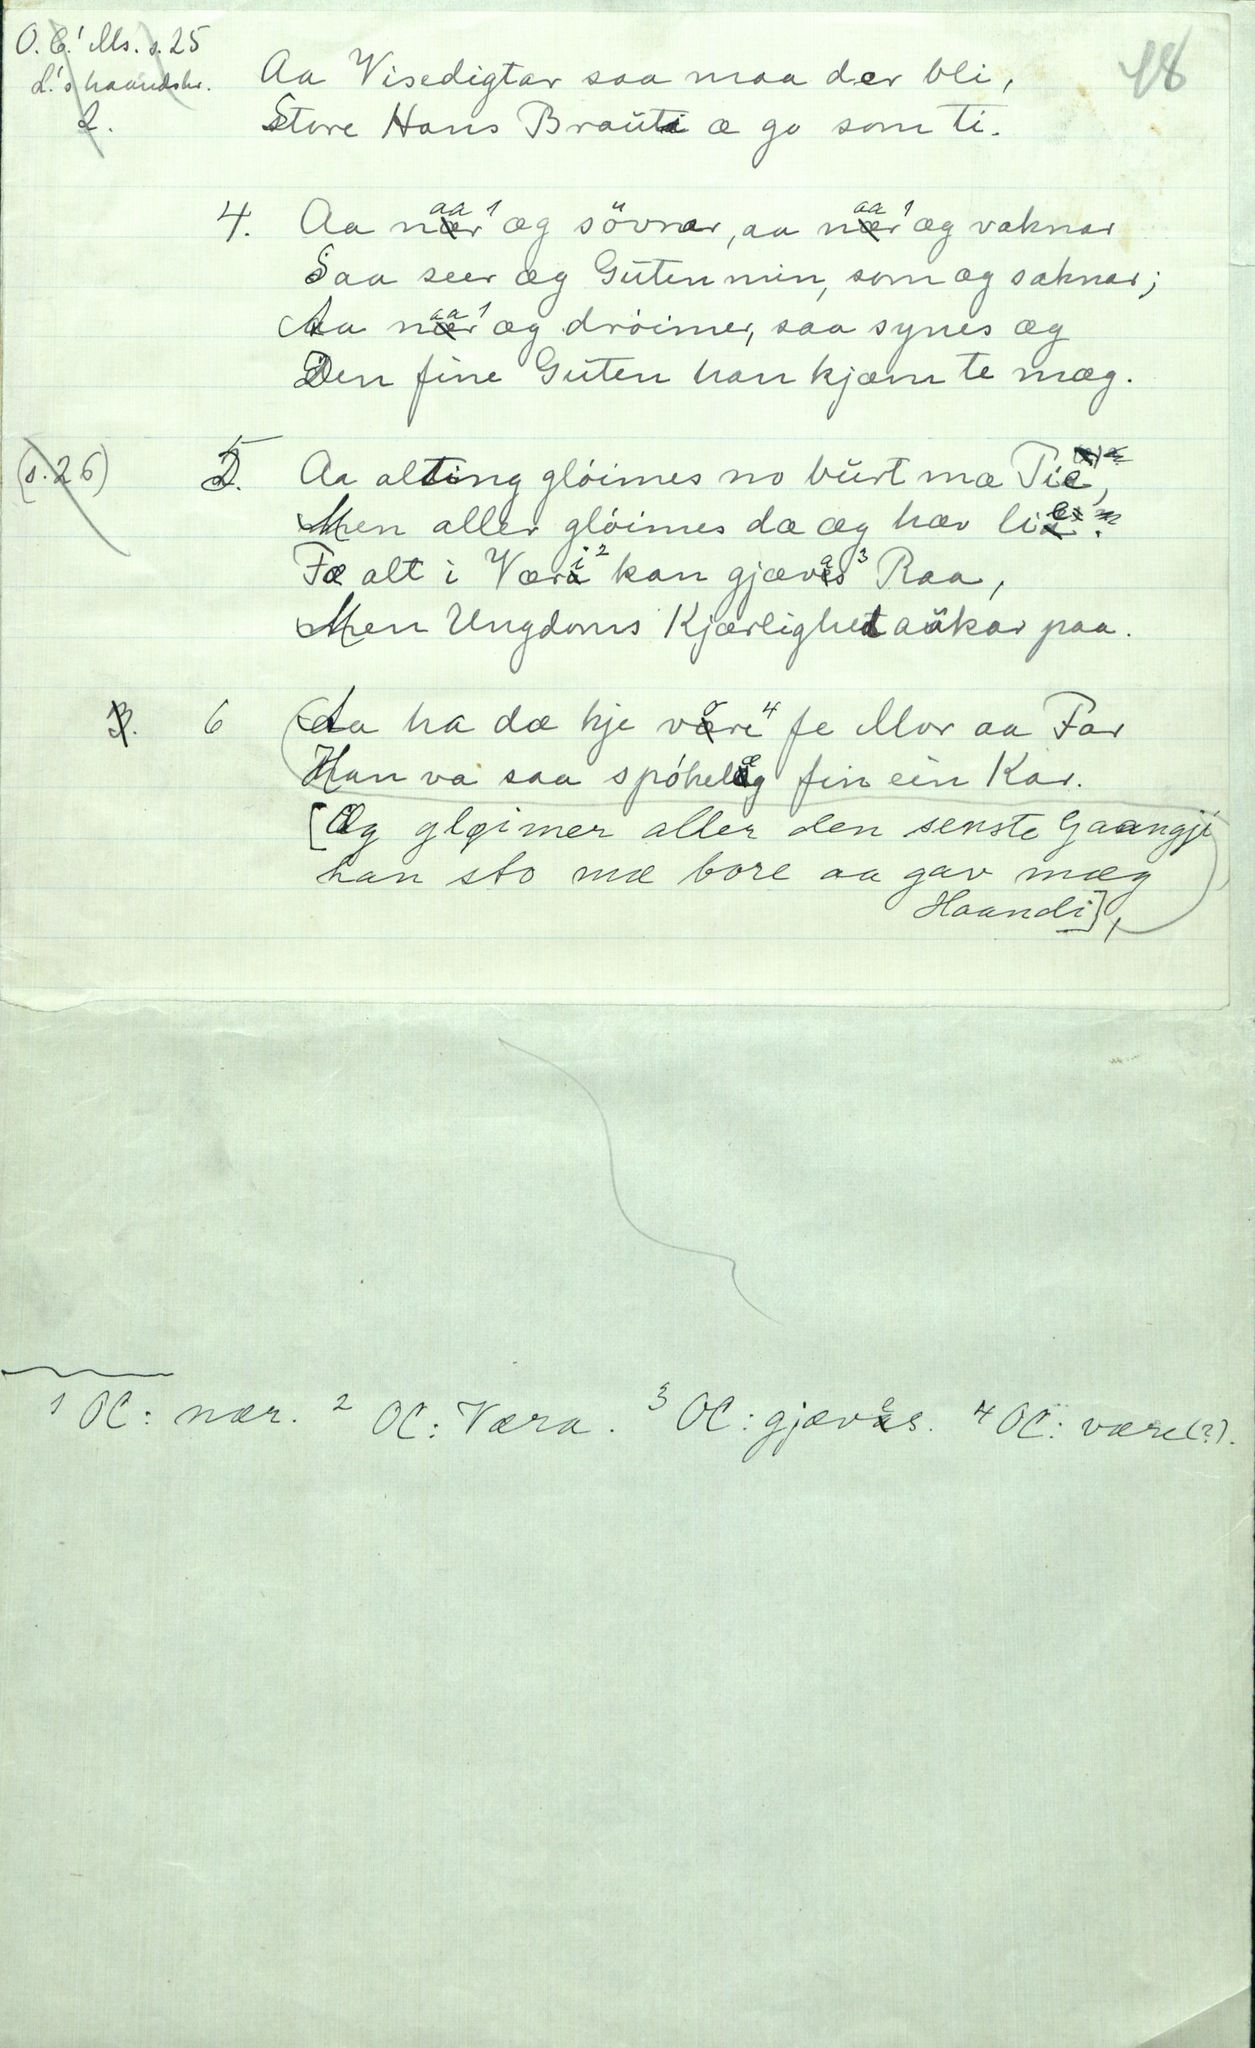 O. C.' Ms. s. 25
L.'s haandskr.
2.
48
Aa Visedigtar saa maa der bli,
Store Hans Brauti æ go som ti.
4. Aa naar¹ æg sövnar, aa naar¹ æg vaknar
Saa seer æg Guten min, som æg saknar;
Aa naar¹ æg dröimer, saa synes æg
Den fine Guten han kjæm te mæg.
(s. 26)
5. Aa alting glöimes no burt mæ Tie,
Men aller glöimes dæ æg hæv lie.
Fæ alt i Væri² kan gjævas³ Raa,
Men Ungdoms Kjærlighet aukar paa.
3. 6 Aa ha dæ kje vore⁴ fe Mor aa Far
Han va saa spökeleg fin ein Kar.
[Æg gløimer aller den senste Gaangji
han sto mæ bore aa gav mæg
Haandi],
¹ OC: nær. ² OC: Væra. ³ OC: gjæves. ⁴ OC: være(?).